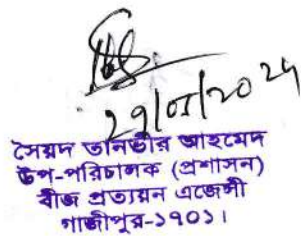 ২৭/০৫/২০২৪
সৈয়দ তানভীর আহমেদ
উপ-পরিচালক (প্রশাসন)
বীজ প্রত্যয়ন এজেন্সী
গাজীপুর-১৭০১।